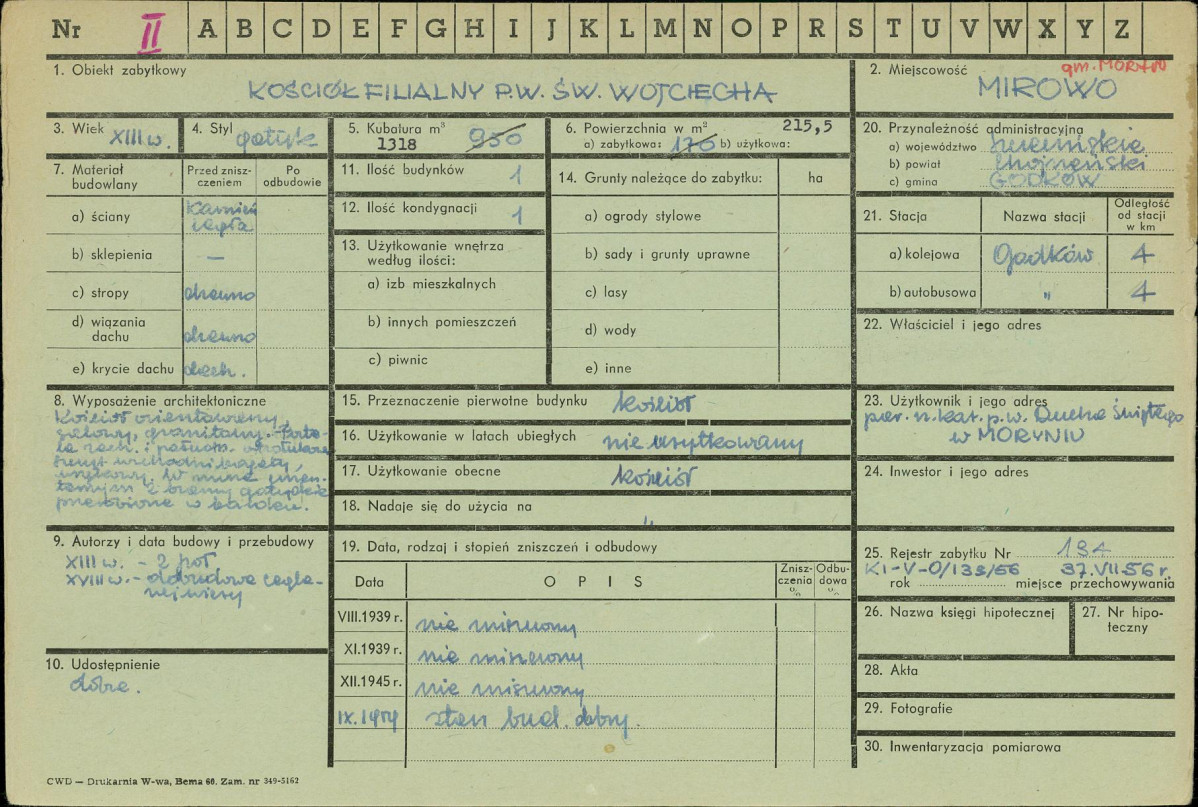 Nr II A B C D E F G H I J K L M N O P R S T U V W X Y Z
1. Obiekt zabytkowy
KOŚCIÓŁ FILIALNY P.W. ŚW. WOJCIECHA
2. Miejscowość gm. MORYŃ
MIROWO
3. Wiek XIII w.
4. Styl gotyk
5. Kubatura m³ 950
1318
6. Powierzchnia w m² 215,5
a) zabytkowa: 170 b) użytkowa:
20. Przynależność administracyjna
a) województwo szczecińskie
b) powiat chojneński
c) gmina GODKÓW
7. Materiał budowlany
Przed zniszczeniem
Po odbudowie
a) ściany kamień
cegła
b) sklepienia —
c) stropy drewno
d) wiązania dachu drewno
e) krycie dachu dach.
11. Ilość budynków 1
12. Ilość kondygnacji 1
13. Użytkowanie wnętrza
według ilości:
a) izb mieszkalnych
b) innych pomieszczeń
c) piwnic
14. Grunty należące do zabytku: ha
a) ogrody stylowe
b) sady i grunty uprawne
c) lasy
d) wody
e) inne
21. Stacja Nazwa stacji Odległość od stacji w km
a) kolejowa Godków 4
b) autobusowa " 4
22. Właściciel i jego adres
8. Wyposażenie architektoniczne
Kościół orientowany,
salowy, granitowy. Porta-
le zach. i połudn. ostrołukowe
Szczyt wschodni bogaty,
wnękowy. W murze cmen-
tarnym 2 bramy gotyckie
przerobione w baroku.
15. Przeznaczenie pierwotne budynku kościół
16. Użytkowanie w latach ubiegłych nie użytkowany
17. Użytkowanie obecne kościół
18. Nadaje się do użycia na "
23. Użytkownik i jego adres
par. rz. kat. p.w. Ducha Świętego
w MORYNIU
24. Inwestor i jego adres
9. Autorzy i data budowy i przebudowy
XIII w. - 2 poł.
XVIII w. - dobudowa cegla-
nej wieży
10. Udostępnienie
dobre.
19. Data, rodzaj i stopień zniszczeń i odbudowy
Data OPIS Zniszczenia % Odbudowa %
VIII.1939 r. nie zniszczony
XI.1939 r. nie zniszczony
XII.1945 r. nie zniszczony
IX.1959 stan bud. dobry.
25. Rejestr zabytku Nr 134
KI-V-0/133/56 37.VII 56 r.
rok miejsce przechowywania
26. Nazwa księgi hipotecznej
27. Nr hipoteczny
28. Akta
29. Fotografie
30. Inwentaryzacja pomiarowa
CWD — Drukarnia W-wa, Bema 60. Zam. nr 349-5162